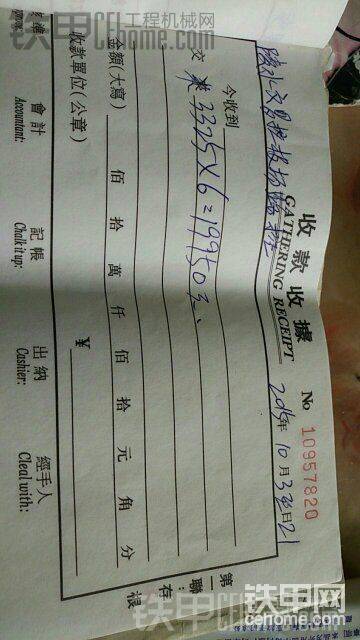 铁甲工程机械网
cehome.com
收款收據
GATHERING RECEIPT
No 10957820
2015年 10月 日21
今收到
交 来 3325×6=19950元
金額(大寫) 佰 拾 萬 仟 佰 拾 元 角 分
¥
收款單位(公章)
會計
Accountant:
記帳
Chalk it up:
出納
Cashier:
經手人
Cleal with:
第 聯 存根
铁甲
cehome.com